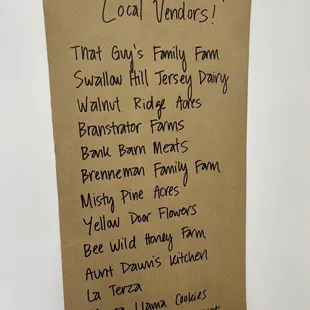 Local Vendors!
That Guy's Family Farm
Swallow Hill Jersey Dairy
Walnut Ridge Acres
Branstrator Farms
Bank Barn Meats
Brenneman Family Farm
Misty Pine Acres
Yellow Door Flowers
Bee Wild Honey Farm
Aunt Dawn's Kitchen
La Terza
Llama Cookies